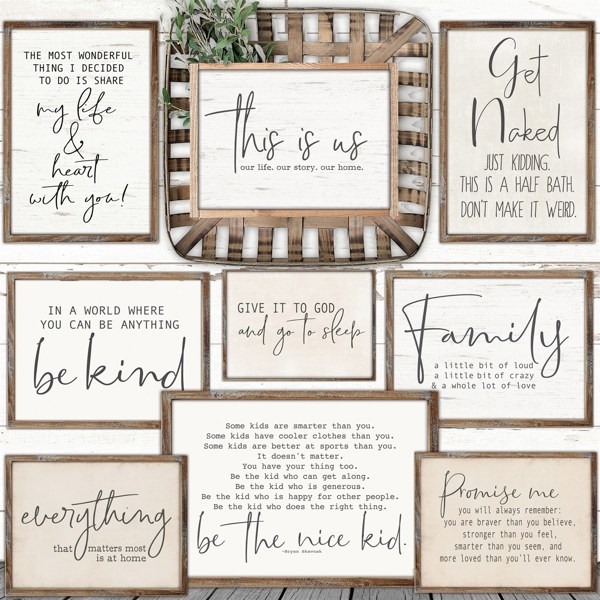 THE MOST WONDERFUL
THING I DECIDED
TO DO IS SHARE
my life
&
heart
with you!
this is us
our life. our story. our home.
Get
Naked
JUST KIDDING.
THIS IS A HALF BATH.
DON'T MAKE IT WEIRD.
IN A WORLD WHERE
YOU CAN BE ANYTHING
be kind
GIVE IT TO GOD
and go to sleep
Family
a little bit of loud
a little bit of crazy
& a whole lot of love
everything
that matters most
is at home
Some kids are smarter than you.
Some kids have cooler clothes than you.
Some kids are better at sports than you.
It doesn't matter.
You have your thing too.
Be the kid who can get along.
Be the kid who is generous.
Be the kid who is happy for other people.
Be the kid who does the right thing.
be the nice kid.
Promise me
you will always remember:
you are braver than you believe,
stronger than you feel,
smarter than you seem, and
more loved than you'll ever know.